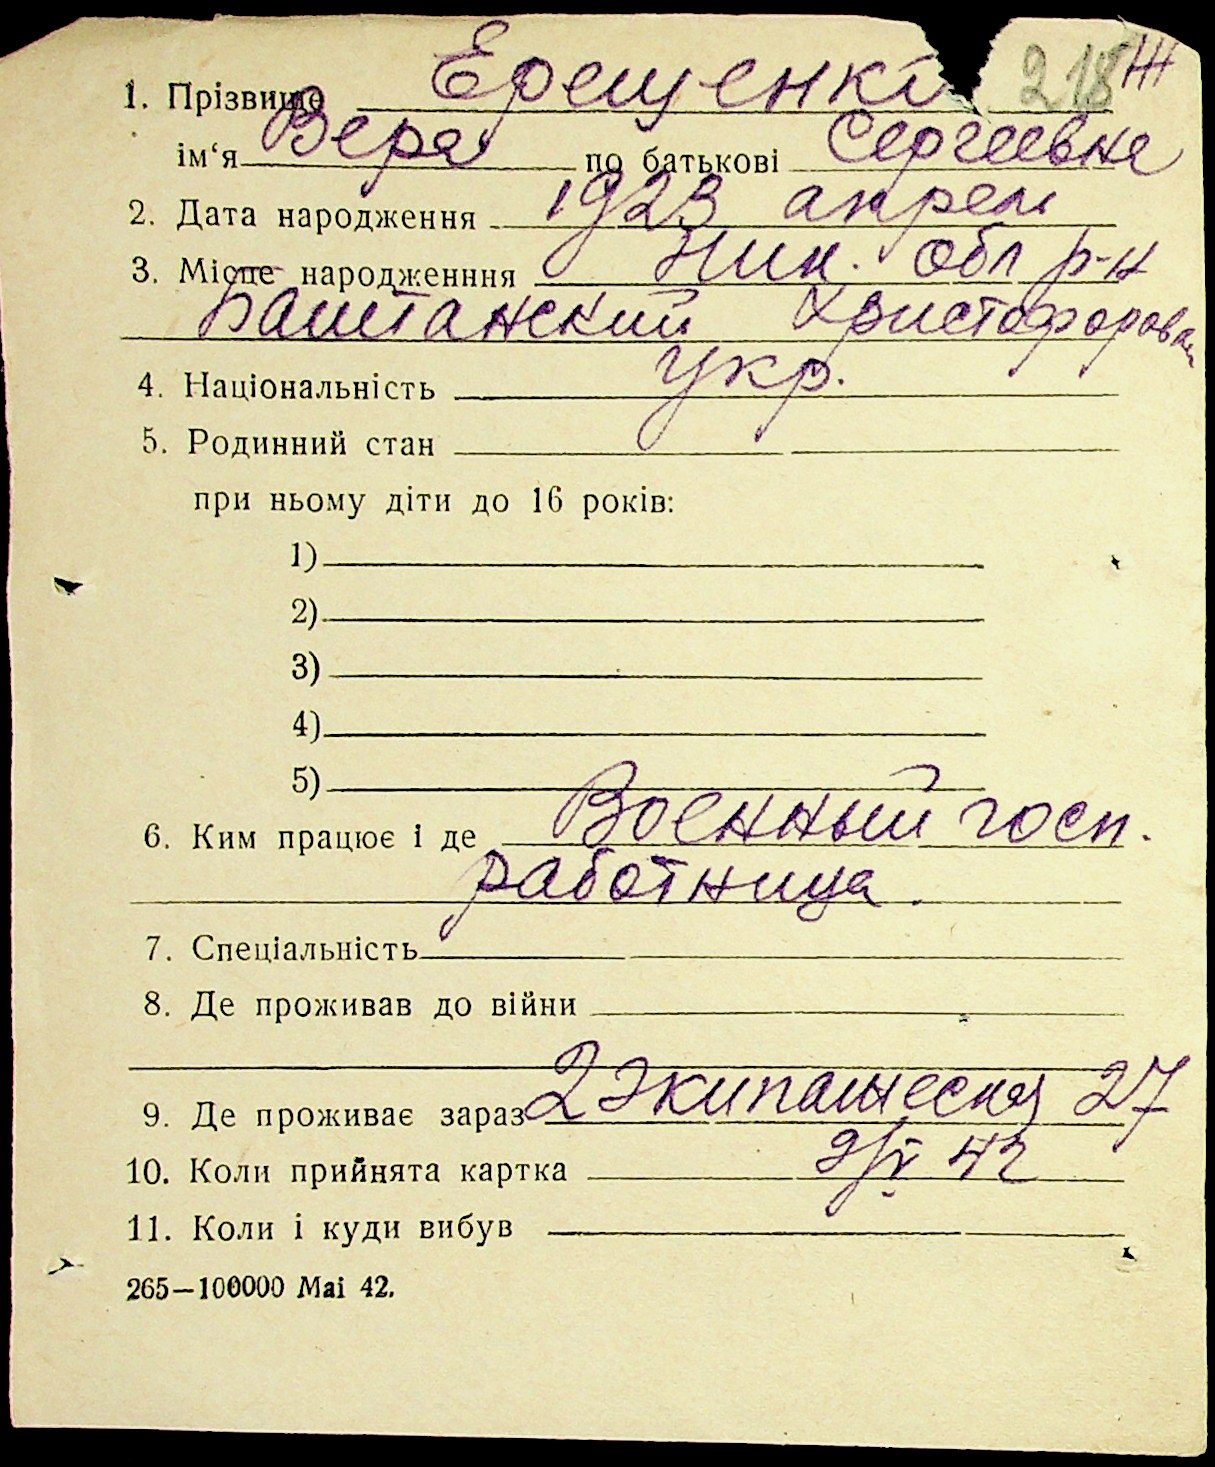 218 Ж
1. Прізвище Ерещенко
ім‘я Вера по батькові Сергеевна
2. Дата народження 1923 апрель
3. Місце народженння Ник. обл р-н
Баштанский Христофоровка
4. Національність укр.
5. Родинний стан
при ньому діти до 16 років:
1)
2)
3)
4)
5)
6. Ким працює і де Военный госп.
работница.
7. Спеціальність
8. Де проживав до війни
9. Де проживає зараз 2 Экипажеская 27
10. Коли прийнята картка 42
11. Коли і куди вибув
265—100000 Mai 42.